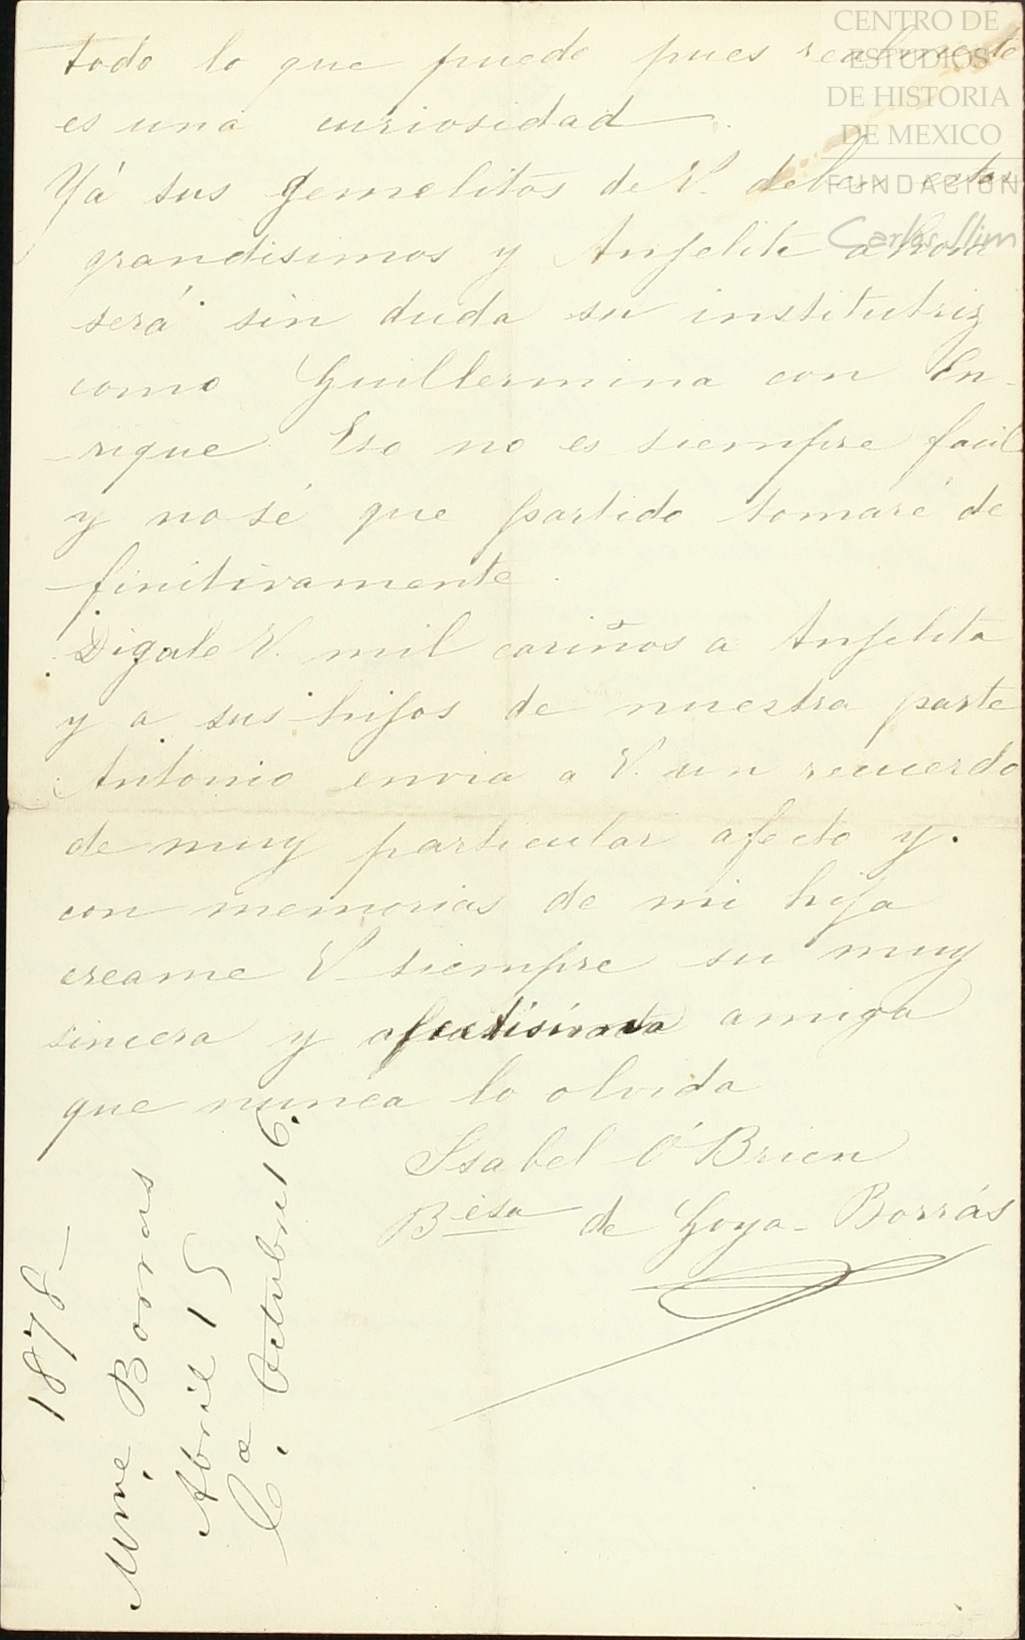 todo lo que puedo pues realmente
es una curiosidad.
Yá sus gemelitos de V. deben estar
grandisimos y Anjelita ahora
será sin duda su institutriz
como Guillermina con En-
-rique Eso no es siempre facil
y no sé que partido tomaré de
-finitivamente.
Digale V. mil cariños a Anjelita
y a sus hijos de nuestra parte
Antonio envia a V. un recuerdo
de muy particular afecto y.
con memorias de mi hija
creame V. siempre su muy
sincera y afectisima amiga
que nunca lo olvida
Isabel O'Brien
Besa de Goya-Borrás
1878-
Mme Borras
Abril 15
Ca Octubre 16.
CENTRO DE
ESTUDIOS
DE HISTORIA
DE MEXICO
FUNDACIÓN
Carlos Slim